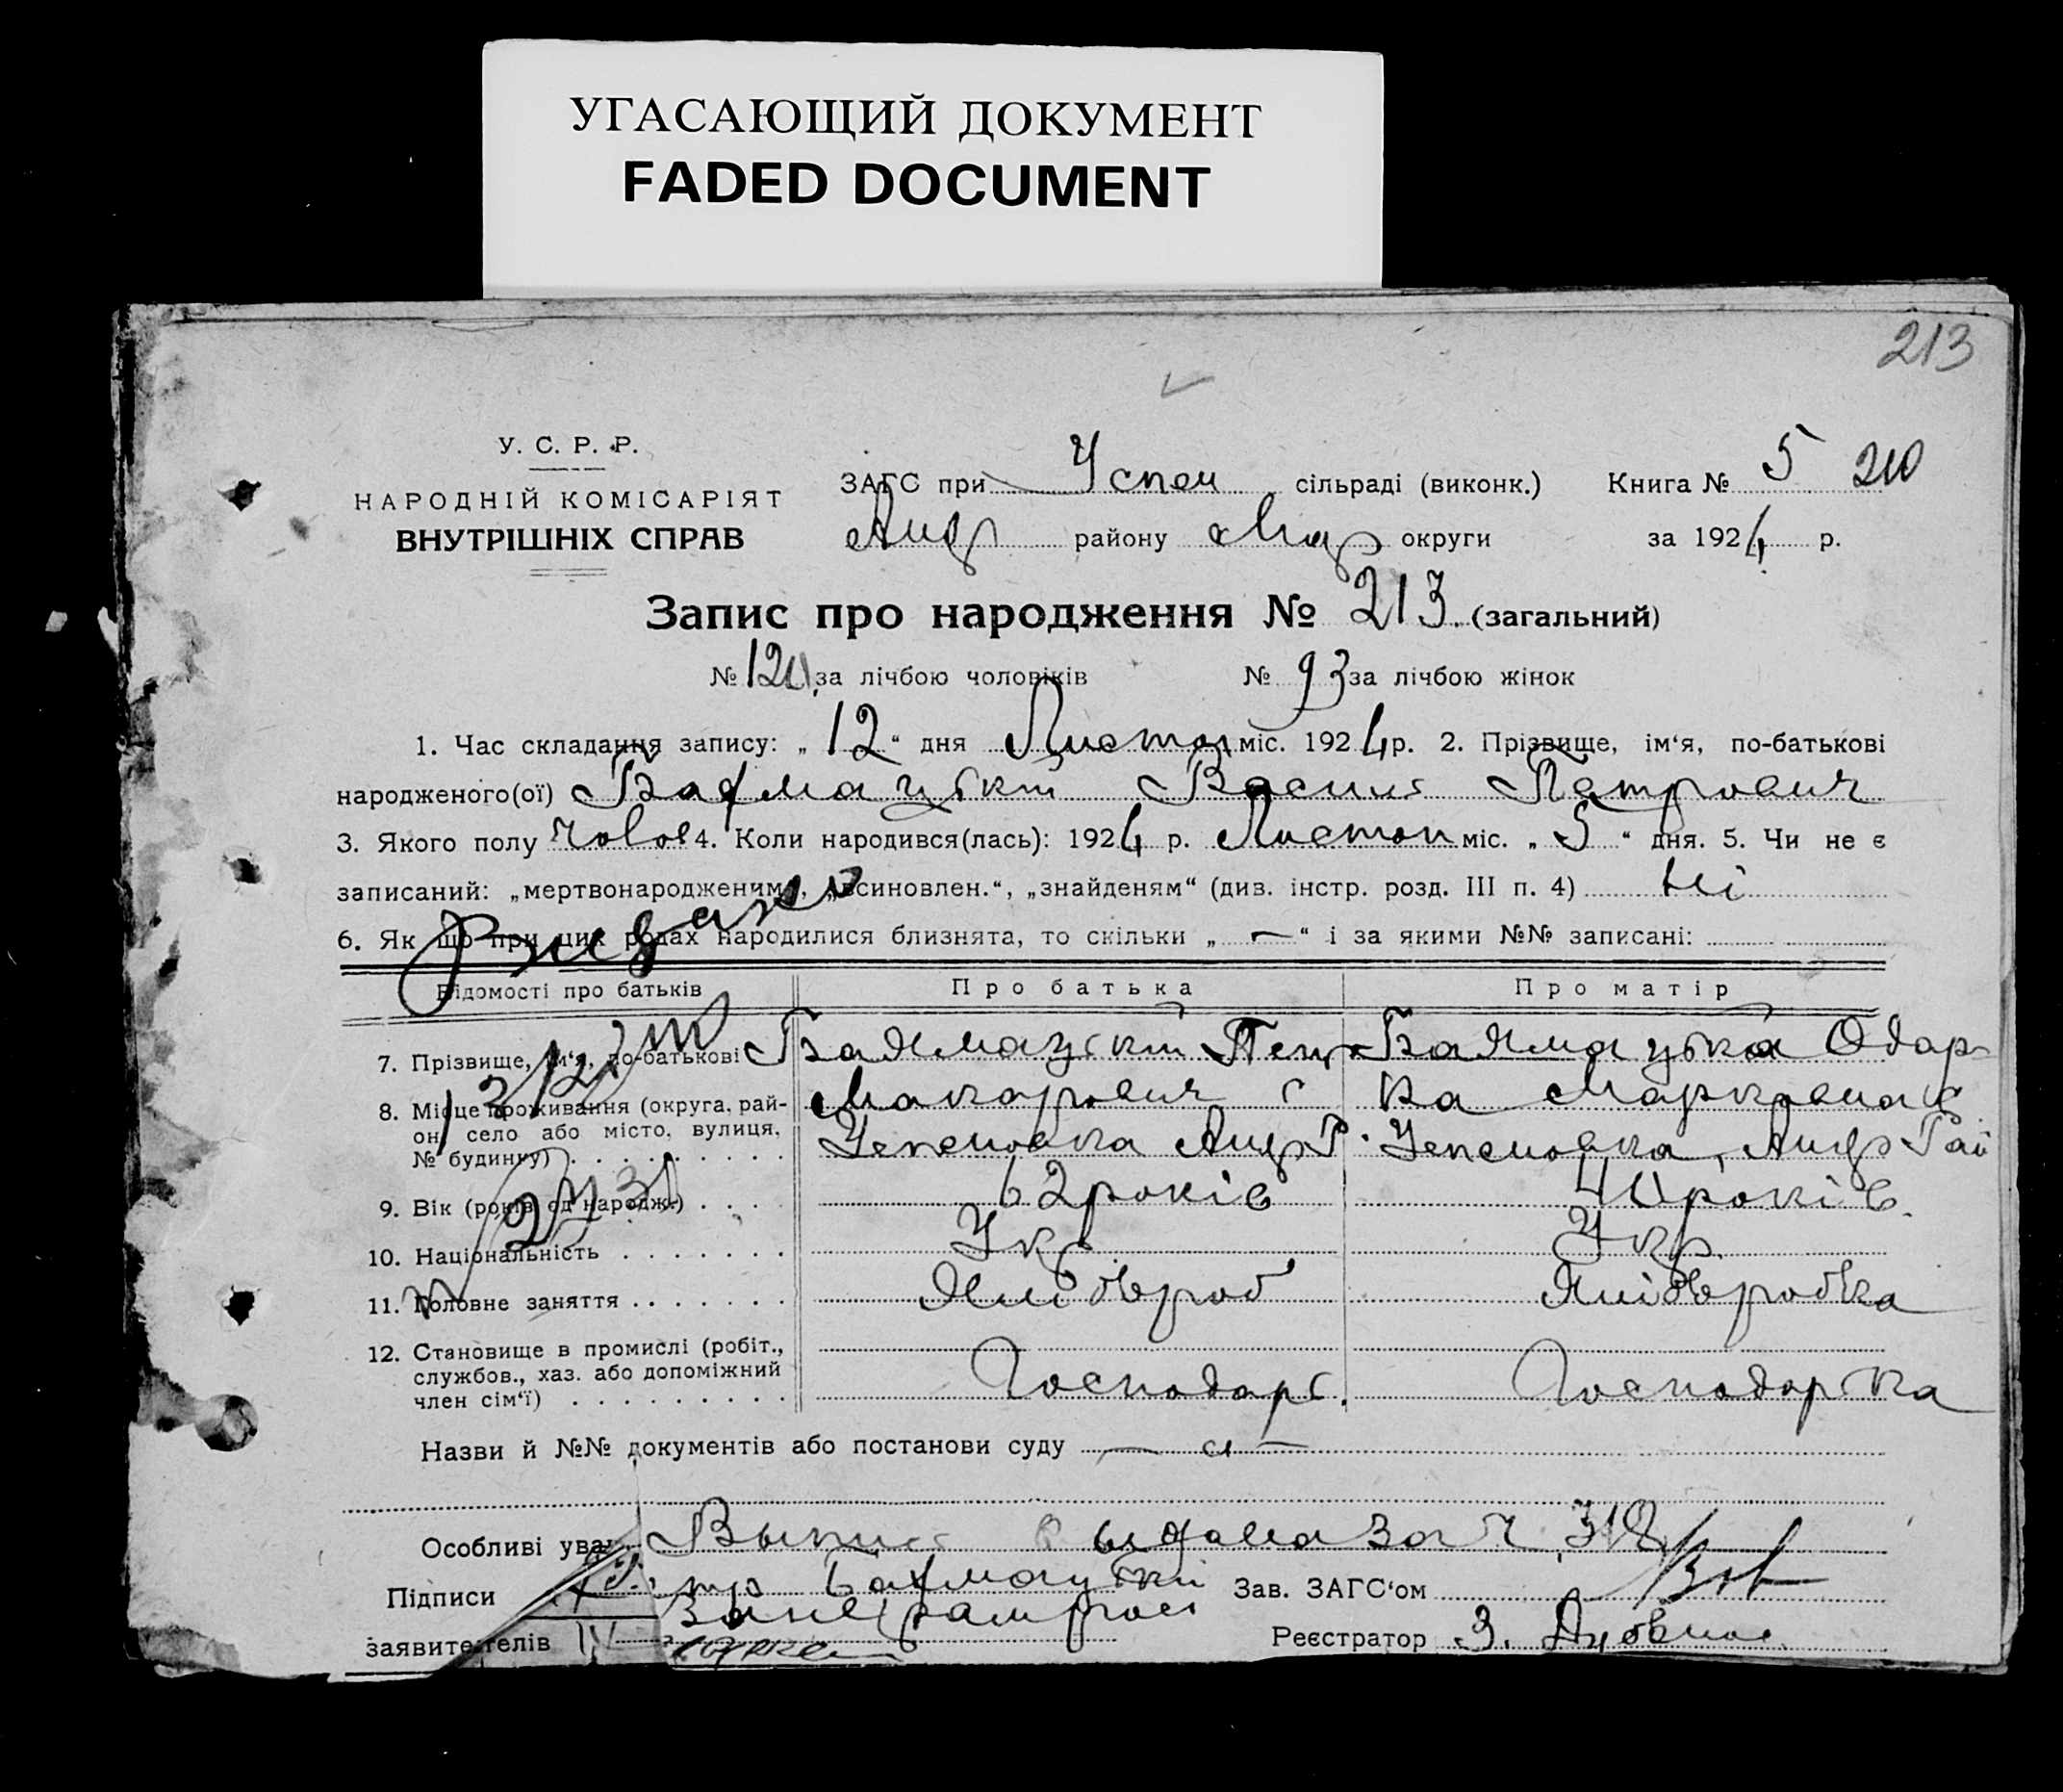 УГАСАЮЩИЙ ДОКУМЕНТ
FADED DOCUMENT
213
У. С. Р. Р.
НАРОДНІЙ КОМІСАРІЯТ
ВНУТРІШНІХ СПРАВ
ЗАГС при Успен сільраді (виконк.) Книга № 5 210
Андр району Мар округи за 1924 р.
Запис про народження № 213. (загальний)
№ 120 за лічбою чоловіків № 93 за лічбою жінок
1. Час складання запису: „ 12 “ дня Листоп міс. 1924 р. 2. Прізвище, ім‘я, по-батькові
народженого(ої) Бахмацький Василь Петрович
3. Якого полу Чолов 4. Коли народився(лась): 1924 р. Листоп міс. „ 5 “ дня. 5. Чи не є
записаний: „мертвонародженим“, „всиновлен.“, „знайденям“ (див. інстр. розд. III п. 4) Ні
6. Як що при цих родах народилися близнята, то скільки „ — “ і за якими №№ записані:
Відомості про батьків Про батька Про матір
7. Прізвище, ім‘я, по-батькові Бахмацький Петр Бахмацька Одар
8. Місце проживання (округа, рай- Макарович с ка Марковна с
он, село або місто, вулиця, Успеновка Андр Р. Успеновка, Андр Рай
№ будинку)
9. Вік (років од народж.) 62 років 40 років
10. Національність Укр. Укр.
11. Головне заняття Хліборoб Хліборобка
12. Становище в промислі (робіт.,
службов., хаз. або допоміжний Господарь. Господарька
член сім‘ї)
Назви й №№ документів або постанови суду
Особливі ува Выпись выдана за Ч 318
Підписи Бахмацький Зав. ЗАГС‘ом
заявителів Реєстратор З.